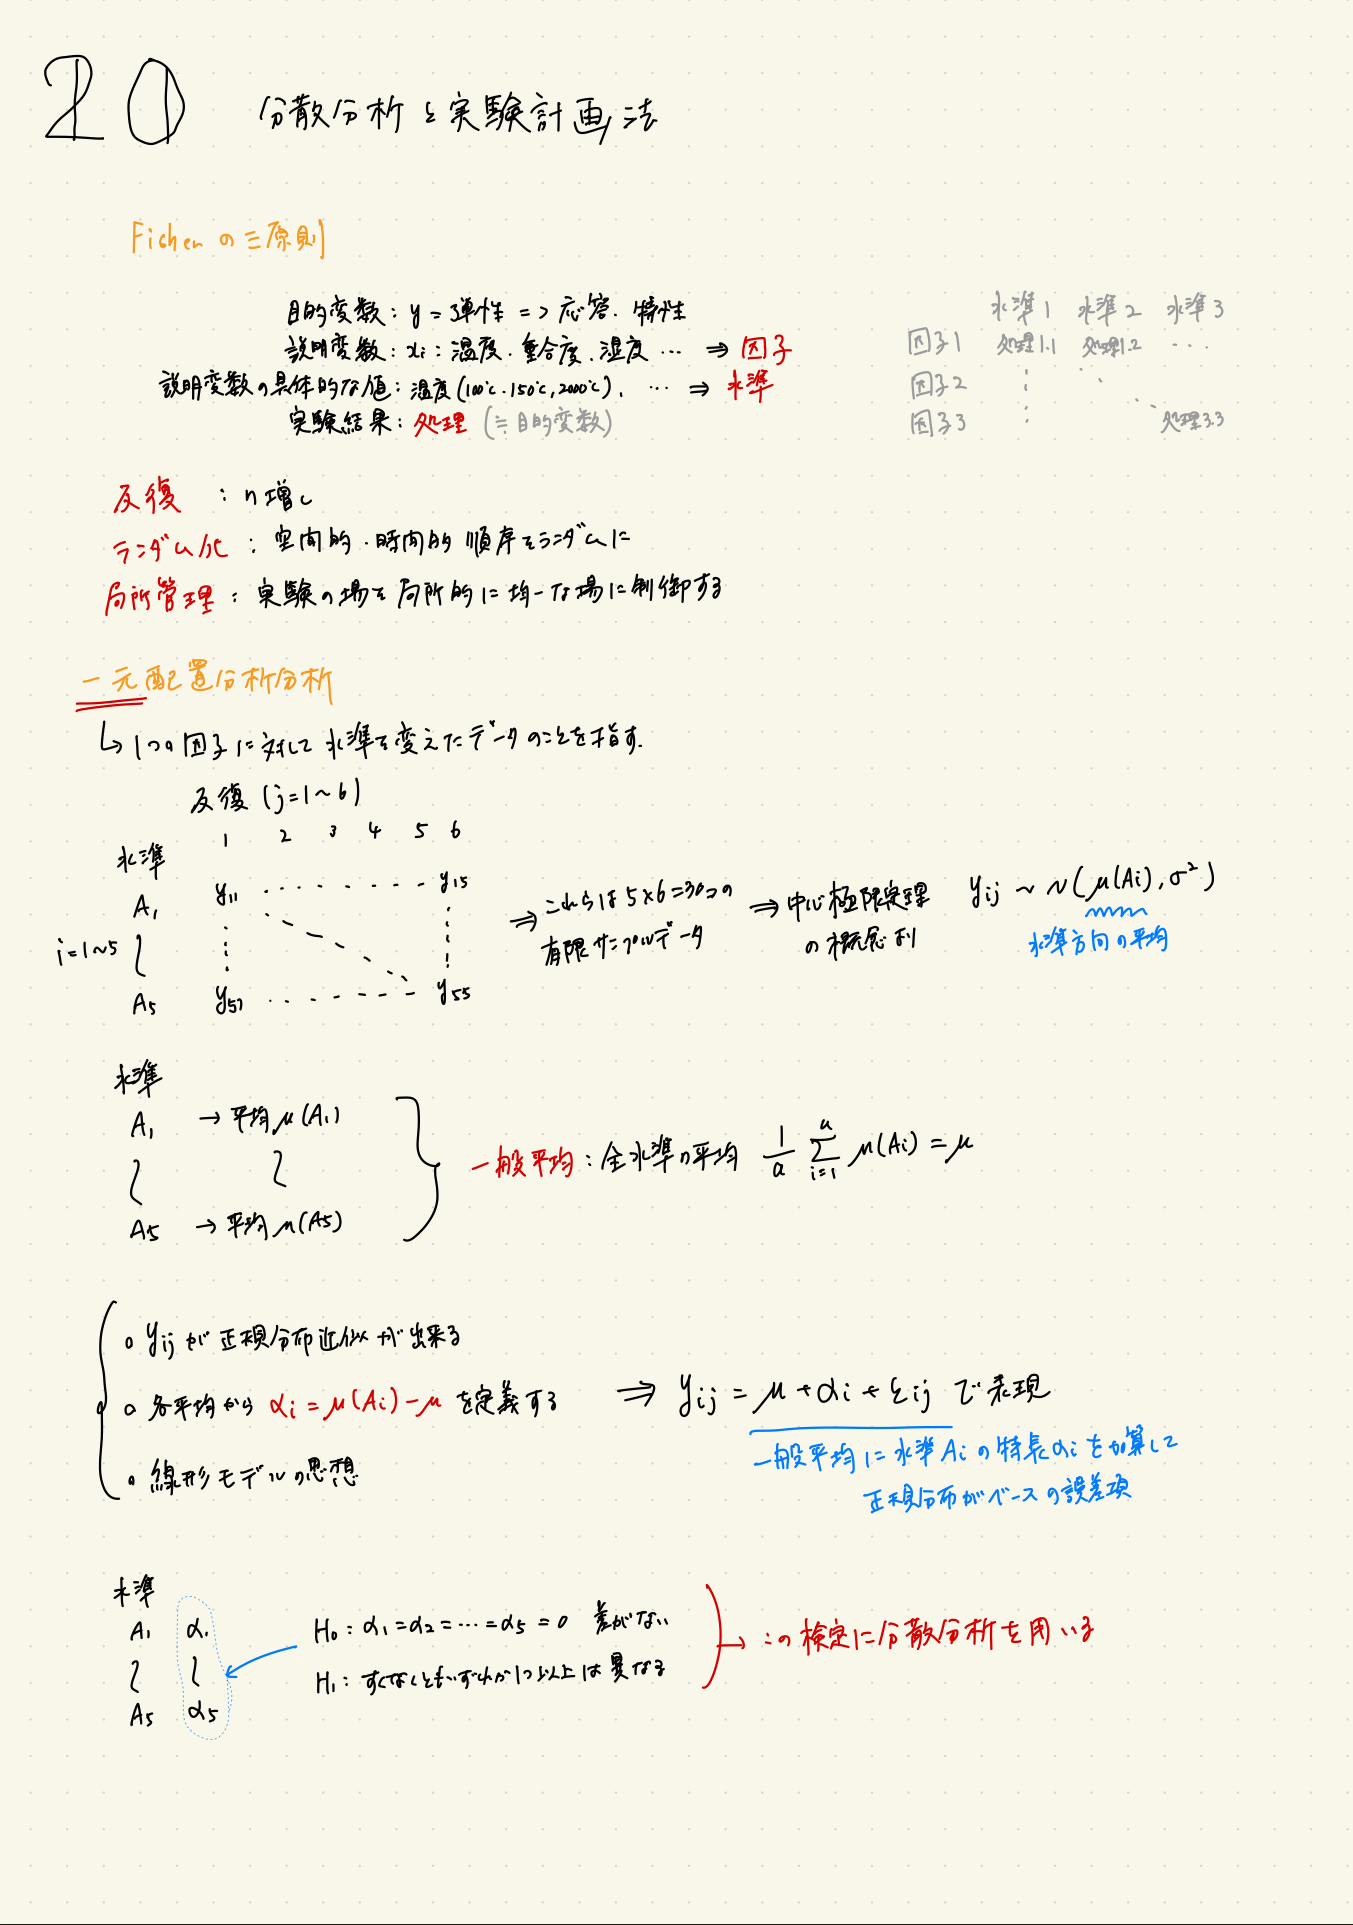 20 分散分析と実験計画法
Fisherの三原則
目的変数: y = 弾性 => 応答・特性
説明変数: xi: 温度・重合度・湿度 … ⇒ 因子
説明変数の具体的な値: 温度(100℃・150℃, 2000℃)、 … ⇒ 水準
実験結果: 処理 (≒目的変数)
水準1 水準2 水準3
因子1 処理1.1 処理1.2 …
因子2
因子3 処理3.3
反復 : n増し
ランダム化 : 空間的・時間的順序をランダムに
局所管理 : 実験の場を局所的に均一な場に制御する
一元配置分析分析
↳ 1つの因子に対して水準を変えたデータのことを指す.
反復 (j=1~6)
1 2 3 4 5 6
水準
A1 y11 y15
i=1~5
A5 y51 y55
⇒ これらは5×6=30この
有限サンプルデータ
⇒ 中心極限定理
の概念利
yij ~ N(μ(Ai), σ²)
水準方向の平均
水準
A1 → 平均μ(A1)
A5 → 平均μ(A5)
一般平均: 全水準の平均 1/a Σ_{i=1}^{a} μ(Ai) = μ
○ yijが正規分布近似が出来る
○ 各平均から αi = μ(Ai) - μ を定義する
○ 線形モデルの思想
⇒ yij = μ + αi + εij で表現
一般平均に水準Aiの特長αiを加算して
正規分布がベースの誤差項
水準
A1 α1
A5 α5
H0: α1 = α2 = … = α5 = 0 差がない
H1: すくなくともいずれか1つ以上は異なる
→ この検定に分散分析を用いる